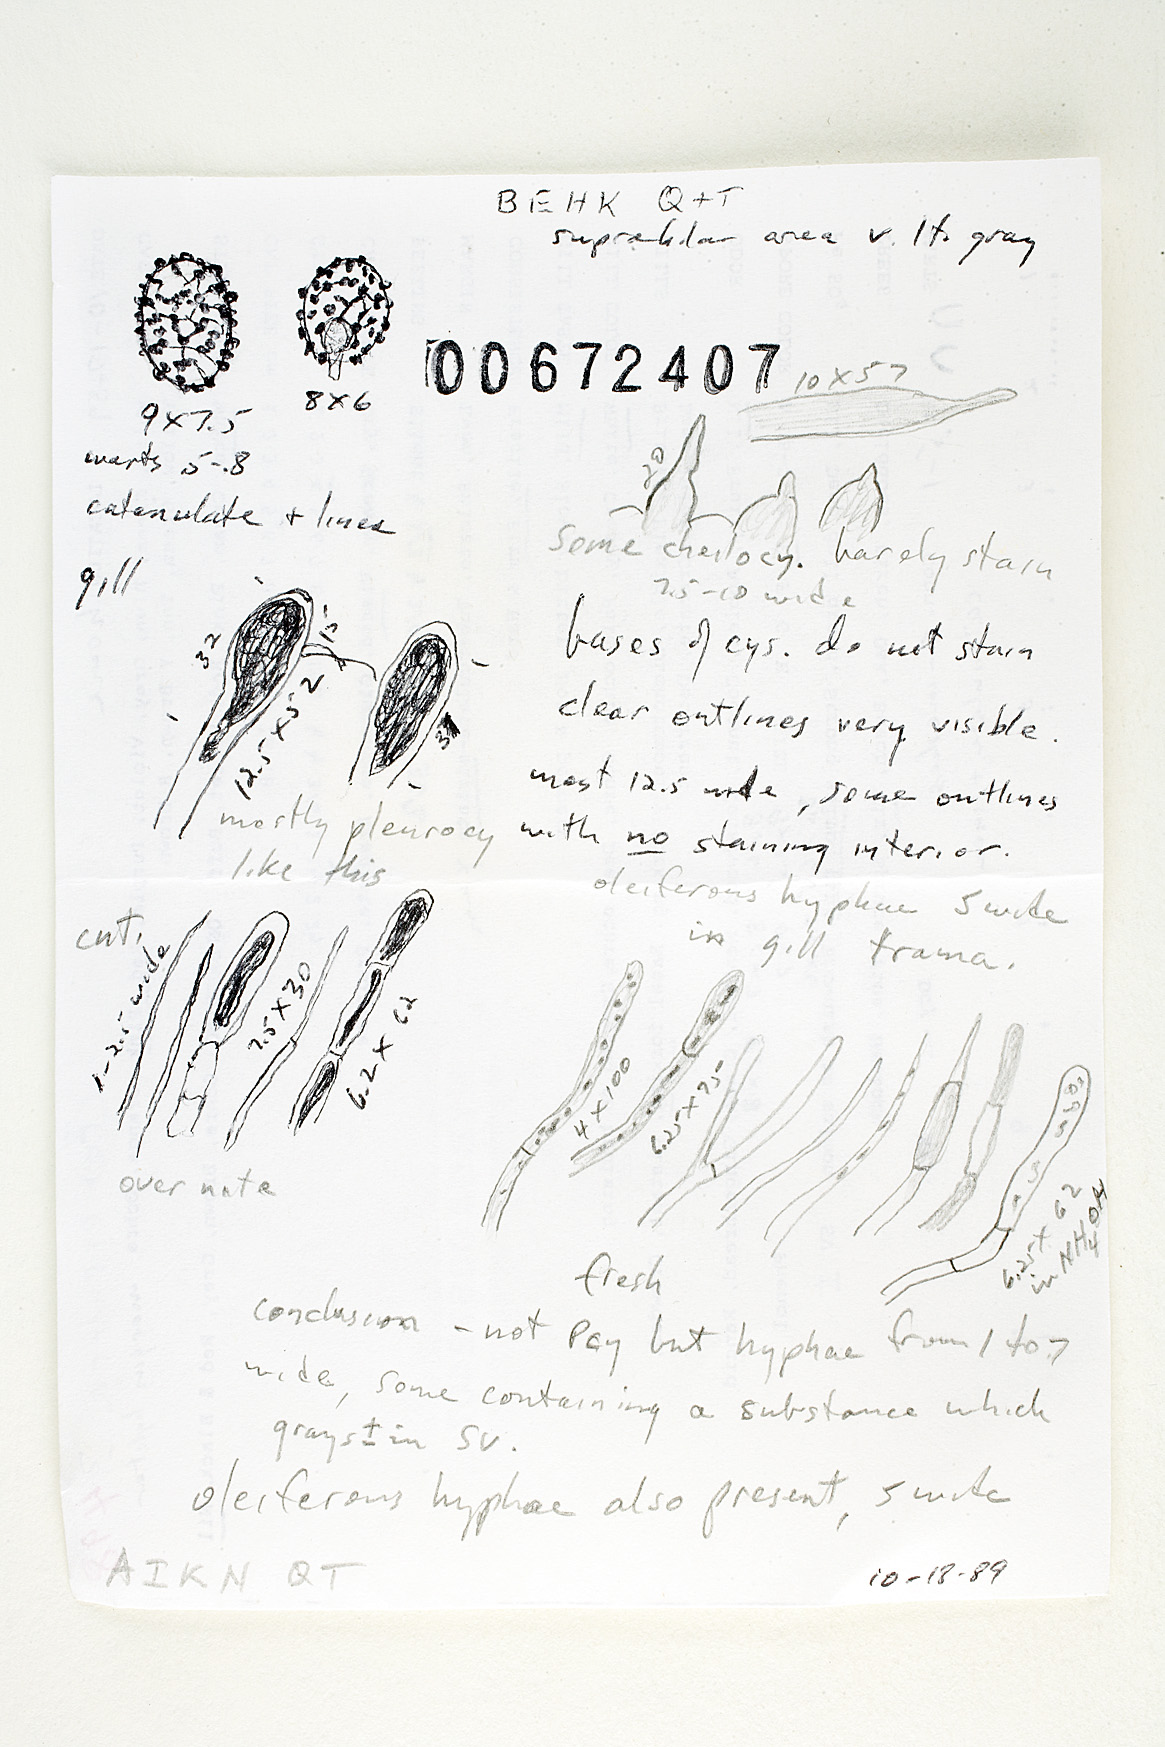 BEHK Q+T
suprahilar area v. lt. gray
00672407
9 x 7.5
8 x 6
10 x 57
warts .5-.8
catenulate + lines
20
Some cheilocy. barely stain
7.5-10 wide
gill
32
15
12.5 x 52
37
bases of cys. do not stain
clear outlines very visible.
most 12.5 wide, some outlines
with no staining interior.
mostly pleurocy
like this
oleiferous hyphae 5 wide
in gill trama.
cut.
1-2.5 wide
7.5 x 30
6.2 x 62
over nite
4 x 100
6.25 x 75
6.25 x 62
in NH4OH
fresh
conclusion - not Pcy but hyphae from 1 to 7
wide, some containing a substance which
grays ± in SV.
oleiferous hyphae also present, 5 wide
AIKN QT
10-18-89